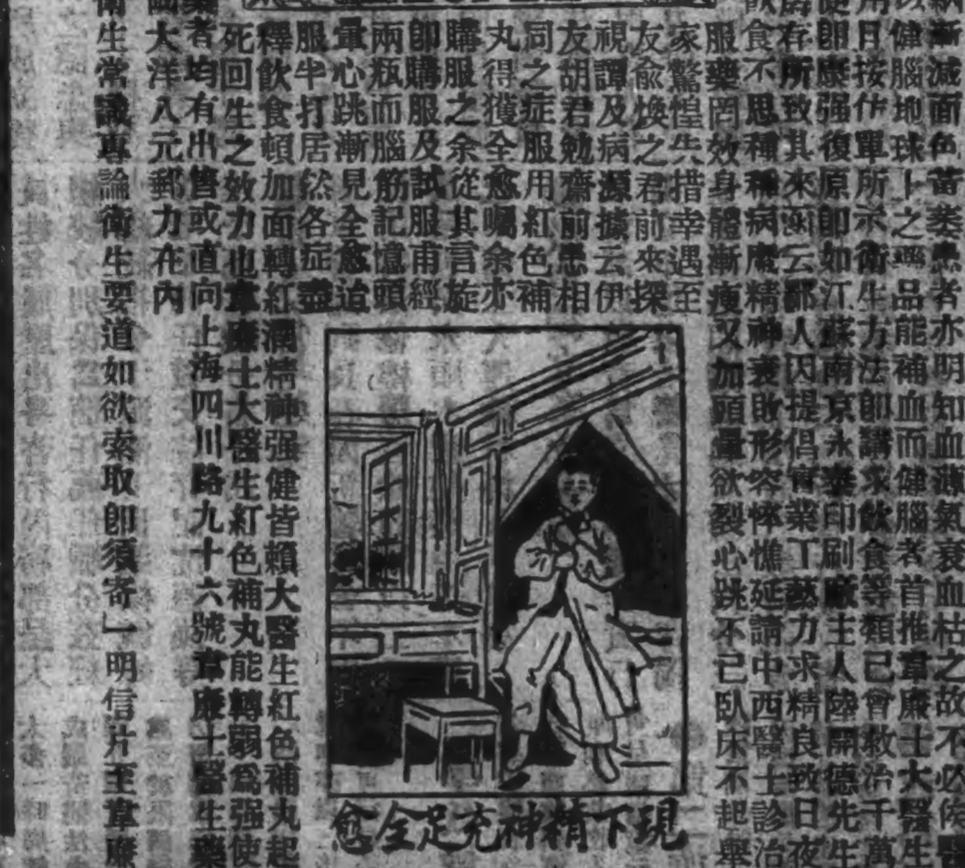 滅面色黃萎患者亦明知血薄氣衰血枯之故不必俟醫
以健腦地球上之藥品能補血而健腦者首推韋廉士大醫生
用日按仿單所示衛生方法即講求飲食等類已曾救治千萬
使即康强復原即如江蘇南京永泰印刷廠主人陸開德先生
存所致其來函云鄙人因提倡實業工藝力求精良致日夜
飲食不思種種病魔精神衰敗形容憔悴延請中西醫士診治
服藥罔效身體漸瘦又加頭暈欲裂心跳不已臥床不起舉
家驚惶失措幸遇至
友俞煥之君前來探
視譚及病源據云伊
友胡君勉齋前患相
同之症服用紅色補
丸得獲全愈囑余亦
購服之余從其言旋
即購服及試服甫經
兩瓶而腦筋記憶頭
暈心跳漸見全愈迨
服半打居然各症盡
釋飲食頓加面轉紅潤精神强健皆賴大醫生紅色補丸起
死回生之效力也韋廉士大醫生紅色補丸能轉弱爲强使
者均有出售或直向上海四川路九十六號韋廉士醫生藥
大洋八元郵力在內
衛生常識專論衛生要道如欲索取即須寄一明信片至韋廉
現下精神充足全愈